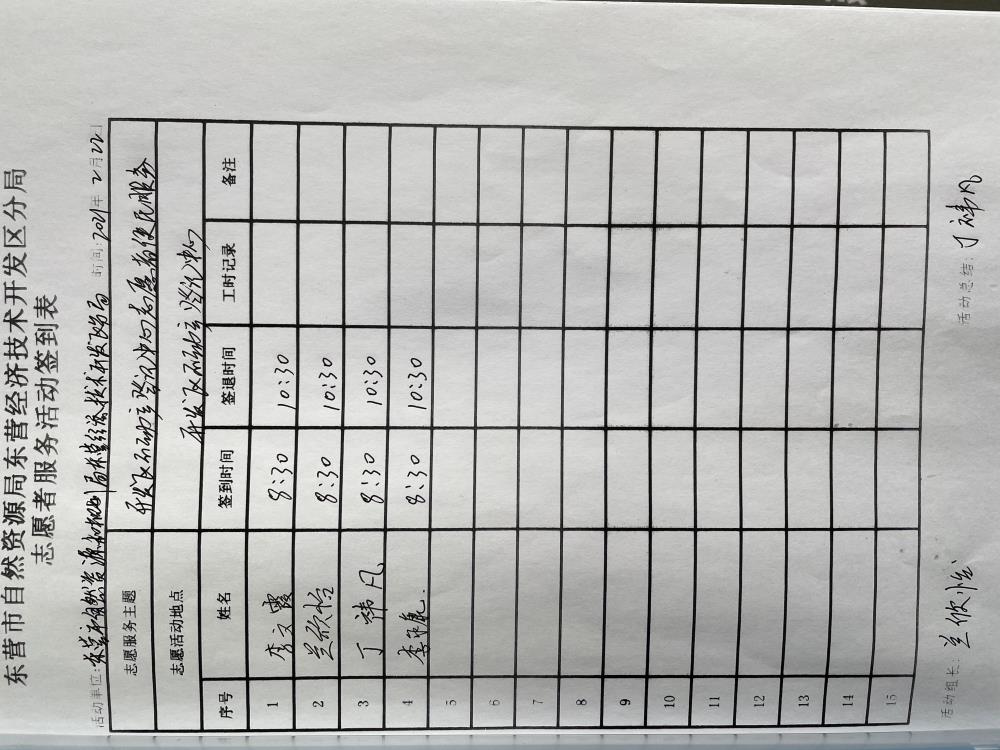 东营市自然资源局东营经济技术开发区分局
志愿者服务活动签到表
活动单位:东营市自然资源和规划局东营经济技术开发区分局 时间:2021年2月22日
志愿服务主题 开发区不动产登记中心志愿者便民服务
志愿活动地点 开发区不动产登记中心
序号 姓名 签到时间 签退时间 工时记录 备注
1 李文霞 8:30 10:30
2 兰欣怡 8:30 10:30
3 丁祎凡 8:30 10:30
4 李 8:30 10:30
5
6
7
8
9
10
11
12
13
14
15
活动组长:兰欣怡 活动总结:丁祎凡